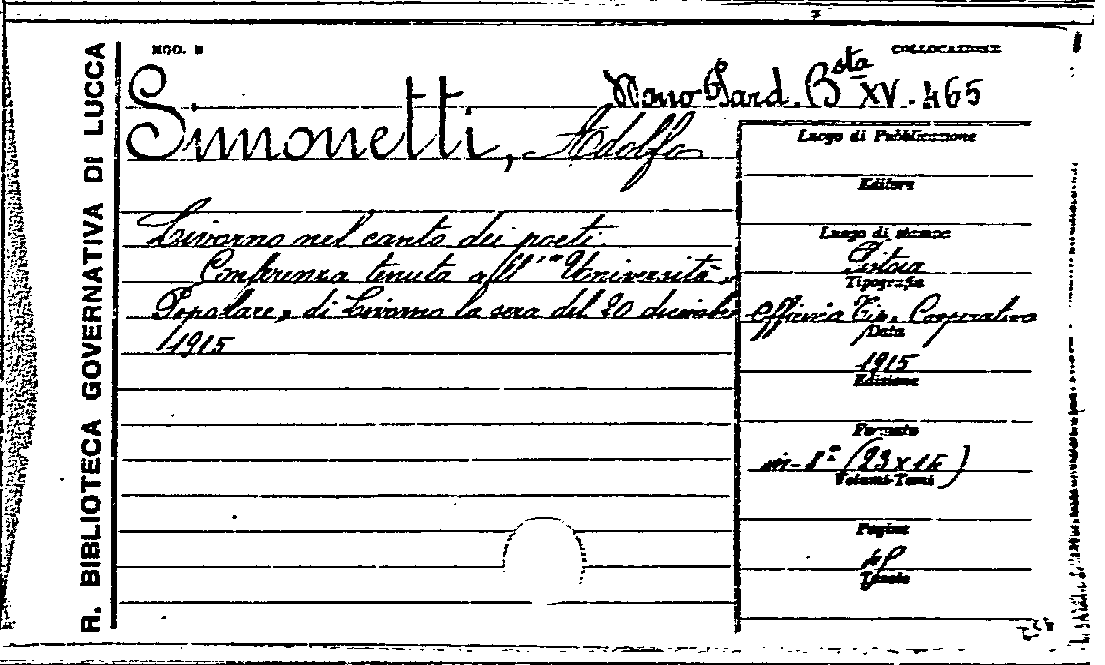 R. BIBLIOTECA GOVERNATIVA DI LUCCA
MOD. B
COLLOCAZIONE
Mono Giard. Bsta XV. 465
Simonetti, Adolfo
Livorno nel canto dei poeti.
Conferenza tenuta all'"Università
Popolare" di Livorno la sera del 20 dicembre
1915
Luogo di Pubblicazione
Editore
Luogo di stampa
Pistoia
Tipografia
Officina Tip. Cooperativa
Data
1915
Edizione
Formato
in-8° (23x15)
Volumi-Tomi
Pagine
Tavole